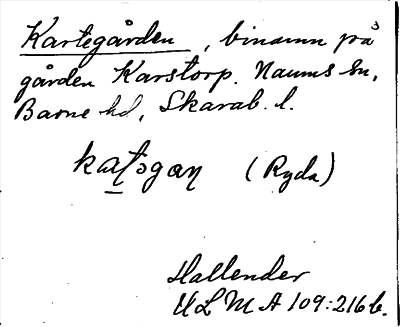 Kartegården, binamn på
gården Karstorp. Naums sn,
Barne hd, Skarab. l.
(Ryda)
Hallender
ULMA 109:216 b.